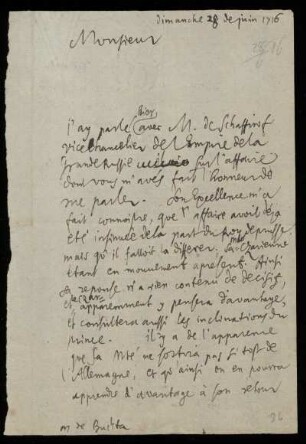 dimanche 28 de juin 1716
Monsieur
J'ay parlé hier avec M. de Schaffirof
vice chancelier de l'Empire de la
Grande Russie sur l'affaire
dont vous m'avés fait l'honneur de
me parler. Son Excellence m'a
fait connoitre, que l'affaire avoit deja
esté insinuée de la part du Roy de prusse
mais qu'il falloit la differer,
estant en mouvement apresent. Ainsi
la reponse n'a rien contenu de decisif,
et apparemment y pensera davantage,
et consultera aussi les inclinations du
prince. il y a de l'apparence
que la Mté ne sortira pas si tost de
l'Allemagne, et qu'ainsi on en pourra
apprendre d'avantage à son retour